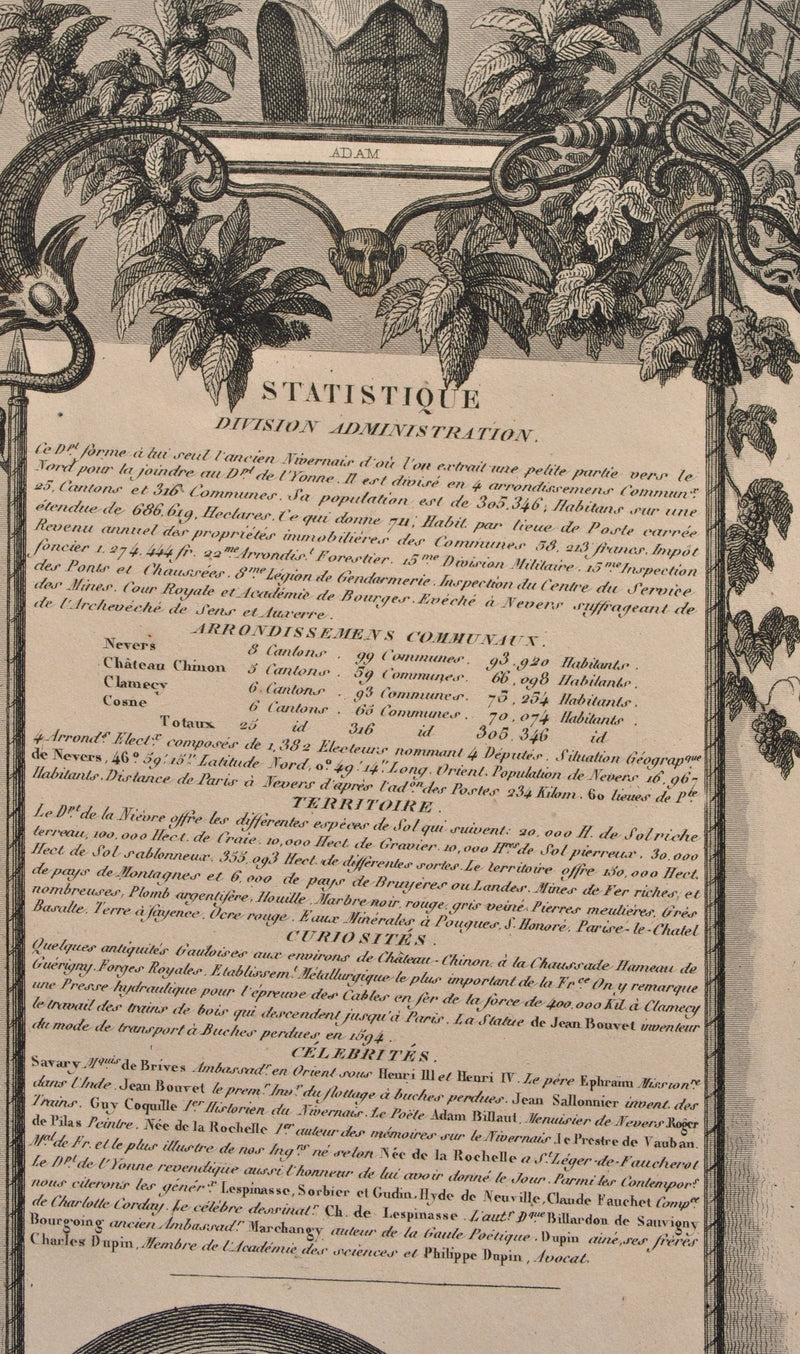 ADAM
STATISTIQUE
DIVISION ADMINISTRATION.
Ce Dpt forme à lui seul l'ancien Nivernais d'où l'on extrait une petite partie vers le
Nord pour la joindre au Dpt de l'Yonne. Il est divisé en 4 arrondissemens Communx
25, Cantons et 316 Communes. Sa population est de 305,346, Habitans sur une
étendue de 686,619, Hectares. Ce qui donne 711, Habit. par lieue de Poste carrée
Revenu annuel des propriétés immobilières des Communes 58, 213 francs. Impôt
foncier 1. 274. 444 fr. 22me Arrondist Forestier. 15me Division Militaire. 15me Inspection
des Ponts et Chaussées. 8me Légion de Gendarmerie. Inspection du Centre du Service
des Mines. Cour Royale et Académie de Bourges. Evêché à Nevers suffrageant de
de l'Archevêché de Sens et Auxerre.
ARRONDISSEMENS COMMUNAUX.
Nevers 8 Cantons. 99 Communes. 93.920 Habitants.
Château Chinon 5 Cantons. 59 Communes. 66,098 Habitants.
Clamecy 6 Cantons. 93 Communes. 75,254 Habitants.
Cosne 6 Cantons. 65 Communes. 70,074 Habitants.
Totaux 25 id 316 id 305,346 id
4 Arrondts Electx composés de 1,382 Electeurs nommant 4 Députés. Situation Géographque
de Nevers, 46° 59' 15" Latitude Nord, 0° 49' 14" Long. Orient. Population de Nevers 16,967
Habitants. Distance de Paris à Nevers d'après l'adon des Postes 234 Kilom. 60 lieues de Pte
TERRITOIRE.
Le Dpt de la Nièvre offre les différentes espèces de Sol qui suivent: 20.000 H. de Sol riche
terreau, 100.000 Hect. de Craie. 10,000 Hect de Gravier. 10,000 Hres de Sol pierreux. 30.000
Hect de Sol sablonneux. 355,093 Hect. de différentes sortes. Le territoire offre 150,000 Hect.
de pays de Montagnes et 6,000 de pays de Bruyères ou Landes. Mines de Fer riches, et
nombreuses, Plomb argentifère, Houille, Marbre noir, rouge, gris veiné. Pierres meulières. Grès
Basalte. Terre à fayence. Ocre rouge. Eaux Minérales à Pougues, St Honoré, Parise-le-Chatel
CURIOSITÉS.
Quelques antiquités Gauloises, aux environs de Château-Chinon. à la Chaussade Hameau de
Guérigny. Forges Royales. Etablissemt Métallurgique le plus important de la Frce On y remarque
une Presse hydraulique pour l'épreuve des Cables en fer de la force de 400.000 Kil à Clamecy
le travail des trains de bois qui descendent jusqu'à Paris. La Statue de Jean Bouvet inventeur
du mode de transport à Buches perdues, en 1594.
CÉLEBRITÉS.
Savary Mquis de Brives Ambassadr en Orient sous Henri III et Henri IV. Le père Ephraim Missionre
dans l'Inde. Jean Bouvet le premr Invr du flottage à buches perdues. Jean Sallonnier invent. des
Trains. Guy Coquille 1er Historien du Nivernais. Le Poëte Adam Billaut, Menuisier de Nevers Roger
de Pilas Peintre. Née de la Rochelle 1er auteur des mémoires sur le Nivernais. le Prestre de Vauban.
Mal de Fr. et le plus illustre de nos Ingrs né selon Née de la Rochelle a St Léger-de-Faucherol
Le Dpt de l'Yonne revendique aussi l'honneur de lui avoir donné le Jour. Parmi les Contempors
nous citerons les génerx Lespinasse, Sorbier et Gudin, Hyde de Neuville, Claude Fauchet Compre
de Charlotte Corday. Le célèbre dessinatr Ch. de Lespinasse. L'autr Dque Billardon de Sauvigny
Bourgoing ancien Ambassadr Marchangy auteur de la Gaule Poëtique. Dupin ainé, ses frères
Charles Dupin, Membre de l'Académie des sciences et Philippe Dupin, Avocat.